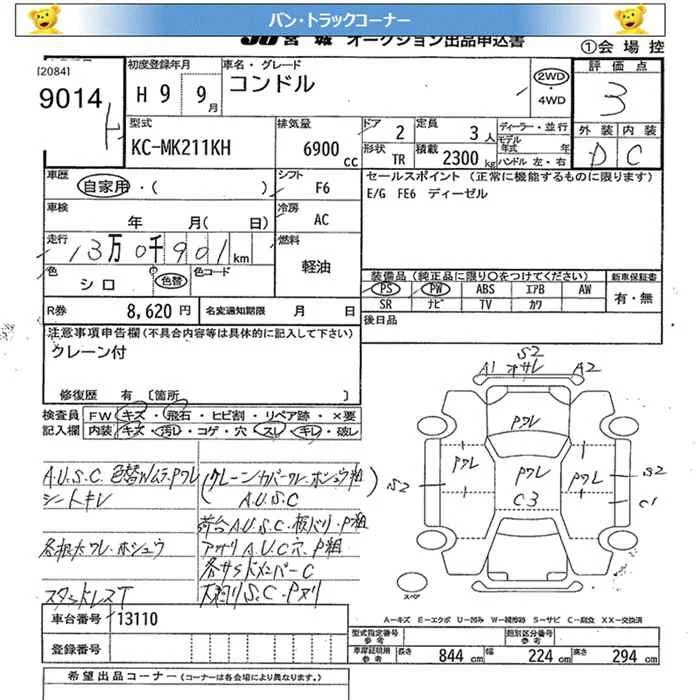 バン・トラックコーナー
JU 宮城 オークション出品申込書
①会場控
[2084]
9014
初度登録年月
H 9 9月
車名・グレード
コンドル
2WD
・
4WD
評価点
3
型式
KC-MK211KH
排気量
6900 cc
ドア 2
定員 3人
ディーラー・並行
モデル年式 年
形状 TR
積載 2300 kg
ハンドル 左・右
外装 内装
D C
車歴
自家用・( )
シフト F6
セールスポイント (正常に機能するものに限ります)
E/G FE6 ディーゼル
車検
年 月( 日)
冷房 AC
走行
13万0千901km
燃料
軽油
色
シロ
色替
色コード
装備品(純正品に限り○をつけてください)
新車保証書
PS PW ABS エアB AW
有・無
SR ナビ TV カワ
R券 8,620円
名変通知期限 月 日
後日品
注意事項申告欄(不具合内容等は具体的に記入して下さい)
クレーン付
修復歴 有〔箇所 〕
検査員 FW キズ・飛石・ヒビ割・リペア跡・×要
記入欄 内装 キズ・汚レ・コゲ・穴・スレ・キレ・破レ
A.U.S.C 色替ムラ.Pワレ
シートキレ
(クレーンカバーワレ・ホシュウ粗
A.U.S.C
荷台A.U.S.C.板バリ・P粗
アオリA.U.C穴.P粗
各サブドメンバーC
スタットレスT
S2
A1 オサレ A2
Pワレ
Pワレ
Pワレ
Pワレ
C3
S2
S2
C1
スペア
A−キズ E−エクボ U−凹み W−補修跡 S−サビ C−腐食 XX−交換済
車台番号 13110
登録番号
型式指定番号 参考
類別区分番号 参考
車庫証明用 参考
長さ 844 cm 幅 224 cm 高さ 294 cm
希望出品コーナー (コーナーは各会場により異なります。)